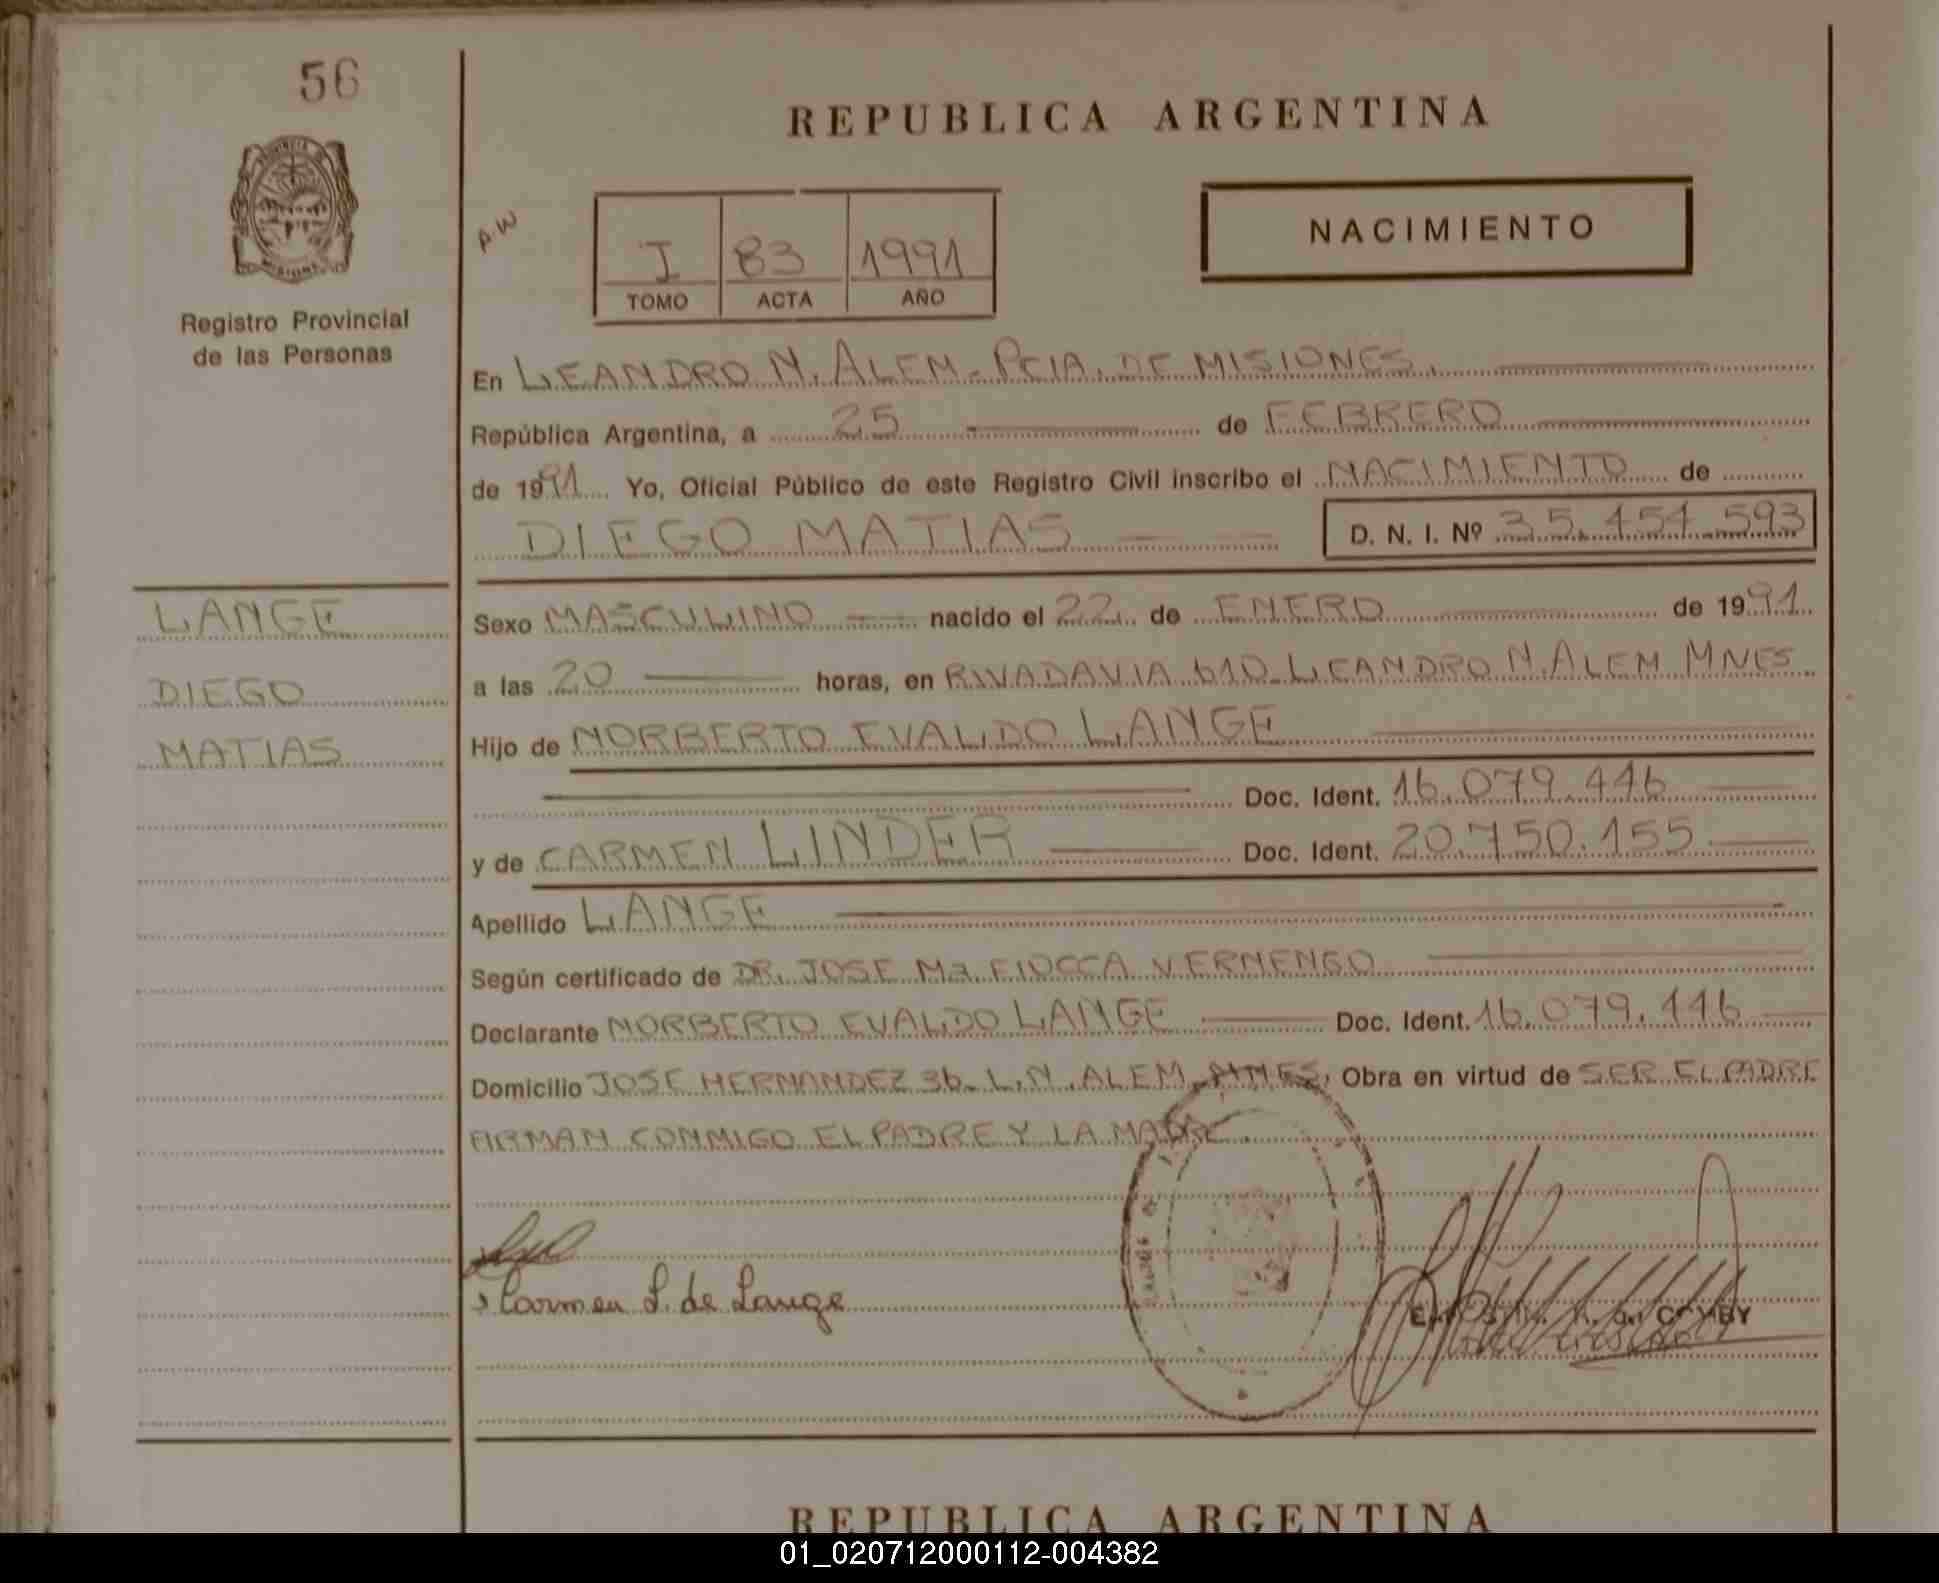 56
REPUBLICA ARGENTINA
NACIMIENTO
A.W
I 83 1991
TOMO ACTA AÑO
Registro Provincial
de las Personas
En LEANDRO N. ALEM - PCIA. DE MISIONES.
República Argentina, a 25 de FEBRERO
de 1991 Yo, Oficial Público de este Registro Civil inscribo el NACIMIENTO de
DIEGO MATIAS D. N. I. Nº 35.454.593
LANGE
DIEGO
MATIAS
Sexo MASCULINO nacido el 22 de ENERO de 1991
a las 20 horas, en RIVADAVIA 610 - LEANDRO N. ALEM MNES
Hijo de NORBERTO EVALDO LANGE
Doc. Ident. 16.079.446
y de CARMEN LINDER Doc. Ident. 20.750.155
Apellido LANGE
Según certificado de DR. JOSE Ma FIOCCA VERNENGO
Declarante NORBERTO EVALDO LANGE Doc. Ident. 16.079.446
Domicilio JOSE HERNANDEZ 36 - L.N. ALEM - MNES, Obra en virtud de SER EL PADRE
FIRMAN CONMIGO EL PADRE Y LA MADRE
Carmen L. de Lange
REPUBLICA ARGENTINA
01_020712000112-004382